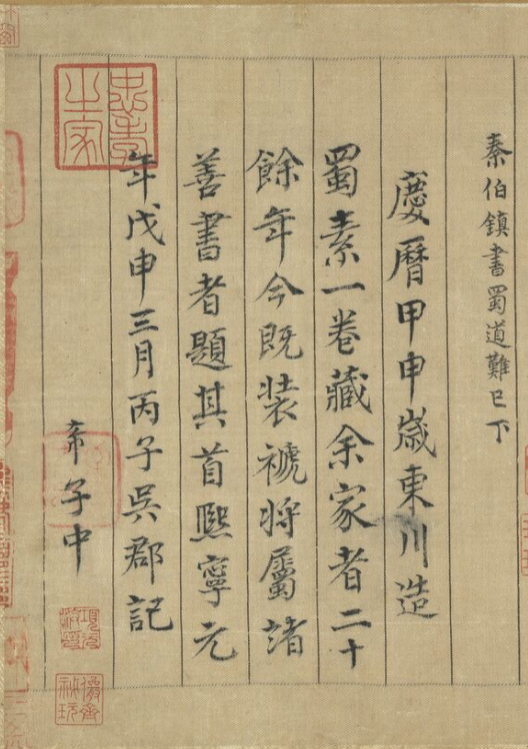 秦伯鎮書蜀道難已下
慶曆甲申歲東川造
蜀素一卷藏余家者二十
餘年今既裝褫將屬諸
善書者題其首熙寧元
年戊申三月丙子吳郡記
子中
忠孝之家